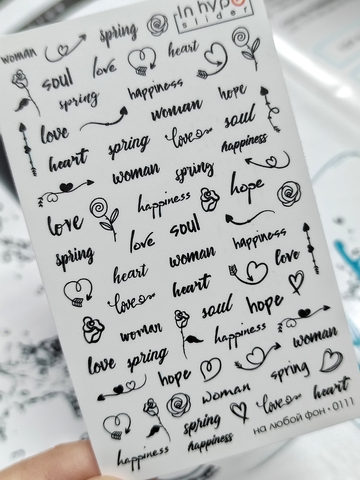 In hypo
slider
woman spring heart
soul love
spring happiness
woman hope
love spring love soul
heart woman spring happiness
happiness hope
love soul
spring love woman happiness
heart
love heart love
woman soul hope
love spring happiness
hope woman
woman spring
happiness spring love heart
happiness
на любой фон • 0111